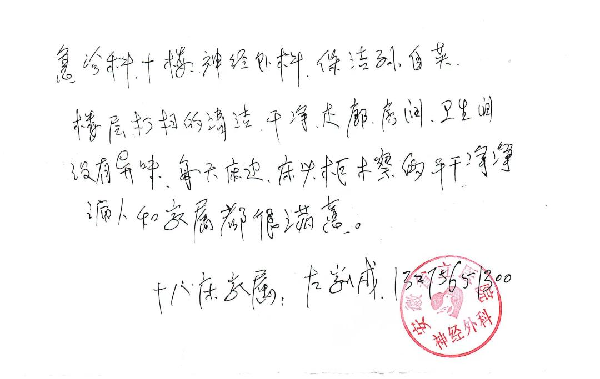 急诊科十楼.神经外科.保洁孙自英.
楼层打扫的清洁.干净.走廊.房间.卫生间
没有异味.每天床边.床头柜擦的干干净净
病人和家属都很满意。
十八床家属:
神经外科